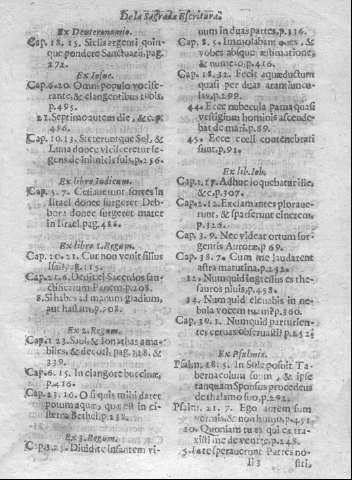 De la Sagrada Escritura.
Ex Deuteronomio.
Cap. 18. 15. Siclus argenti quin-
que pondere Sanctuarii, pag.
272.
Ex Iosue.
Cap. 6. 20. Omni populo vocife-
rante, & clangentibus tubis,
p. 495.
21. Septimo autem die, &c. p.
486.
Cap. 10. 13. Steteruntque Sol, &
Luna donec ulcisceretur se
gens de inimicis suis, p. 256.
Ex libro Iudicum.
Cap. 5. 7. Cessaverunt fortes in
Israel donec surgeret Deb-
bora donec surgeret mater
in Israel. pag. 486.
Ex libro 1. Regum.
Cap. 20. 21. Cur non venit filius
Isai, p. 115.
Cap. 21. 6. Dedit ei Sacerdos san-
ctificatum Panem. p. 208.
8. Si habes ad manum gladium,
aut hastam. p. 208.
Ex 2. Regum.
Cap. 1. 23. Saul, & Ionathas ama-
biles, & decori. pag. 328, &
339.
Cap. 6. 15. In clangore buccinæ,
p. 416.
Cap. 23. 16. O si quis mihi daret
potum aquæ, quæ est in ci-
sterna Bethel. p. 238.
Ex 3. Regum.
Cap. 3. 25. Dividite infantem vi-
uum in duas partes, p. 316.
Cap. 8. 5. Immolabant oves, &
voves absque æstimatione,
& numero. p. 416.
Cap. 18. 32. Fecit aquæductum
quasi per duas aratiuncu-
las, p. 298.
44. Ecce nubecula parva quasi
vestigium hominis ascende-
bat de mari. p. 89.
45. Ecce cœli contenebrati
sunt. p. 91.
Ex lib. Iob.
Cap. 1. 17. Adhuc loquebatur ille,
&c. p. 307.
Cap. 2. 12. Exclamantes plorave-
runt, & sparserunt cinerem.
p. 326.
Cap. 3. 9. Nec videat ortum sur-
gentis Auroræ, p 69.
Cap. 38. 7. Cum me laudarent
astra matutina, p. 252.
22. Numquid ingressus es the-
sauros pluis, p. 458.
Cap. 39. 1. Numquid parturien-
tes cervas observasti? p. 252.
Ex Psalmis.
Psalm. 18. 5. In Sole posuit Ta-
bernaculum suum, & ipse
tanquam Sponsus procedens
de thalamo suo, p. 292.
Psalm. 21. 7. Ego autem sum
vermis, & non homo, p. 451.
20. Quoniam tu es qui extra-
xisti me de ventre, p. 248.
5. In te speraverunt Patres no-
Ii 3 stri,